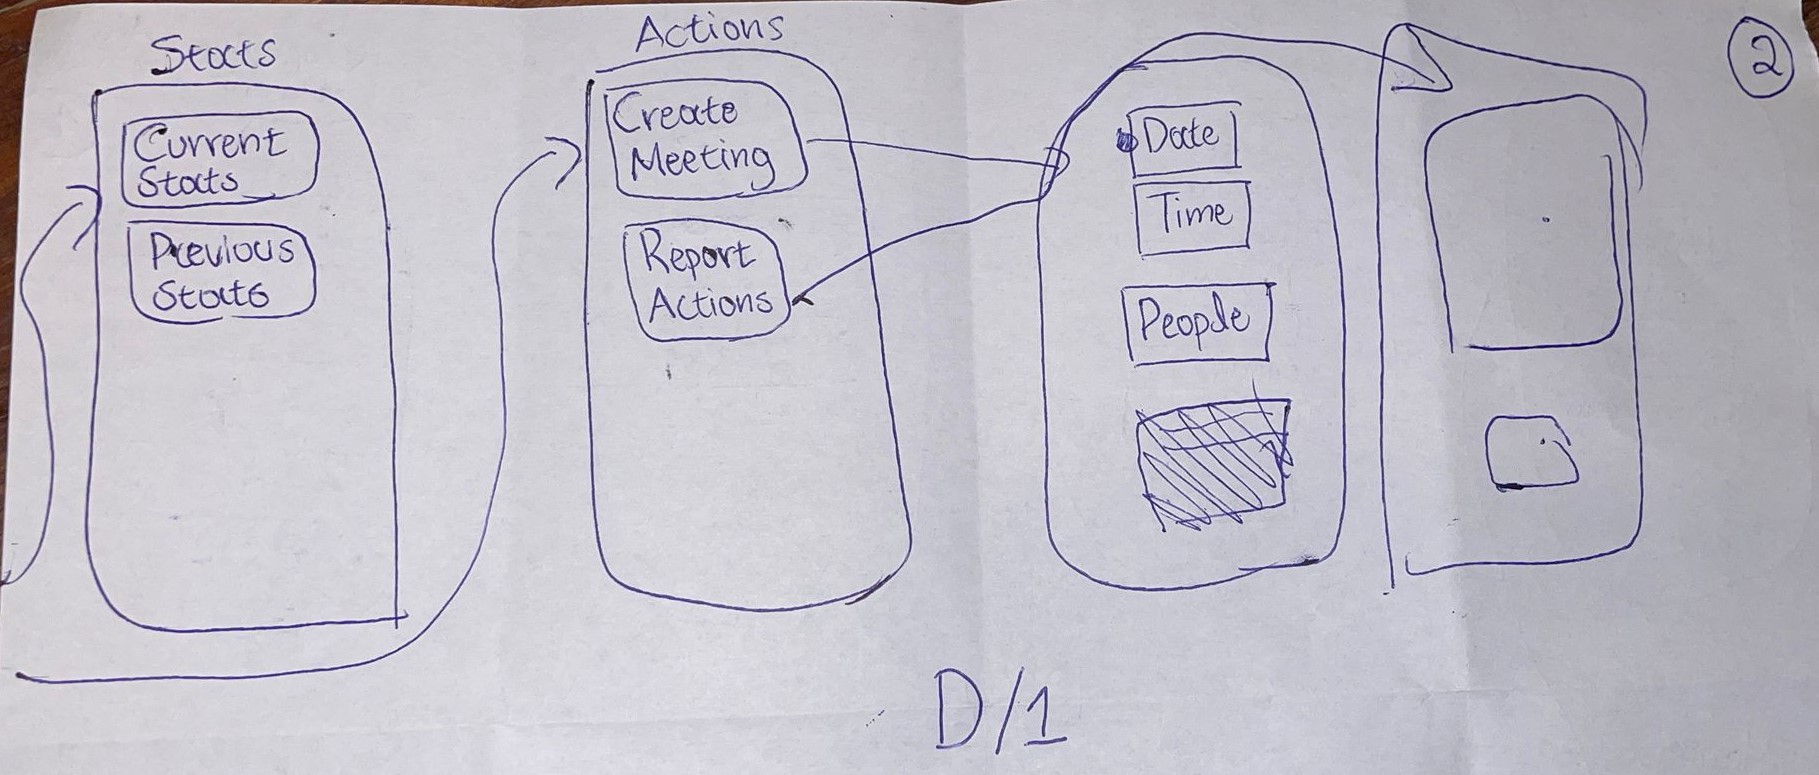 Stats
Current
Stats
Previous
Stats
Actions
Create
Meeting
Report
Actions
Date
Time
People
2
D/1